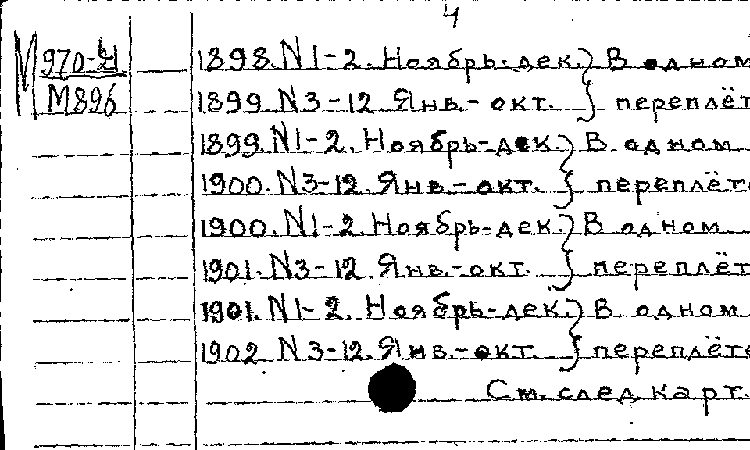 4
М 970-Я 1898. N 1-2. Ноябрь-дек. } В одном
М896 1899. N 3-12 Янв.-окт. } переплёт
1899. N 1-2. Ноябрь-дек. } В одном
1900. N 3-12. Янв.-окт. } переплёте
1900. N 1-2. Ноябрь-дек. } В одном
1901. N 3-12. Янв.-окт. } переплёт
1901. N 1-2. Ноябрь-дек. } В одном
1902 N 3-12. Янв.-окт. } переплёте
См. след. карт.